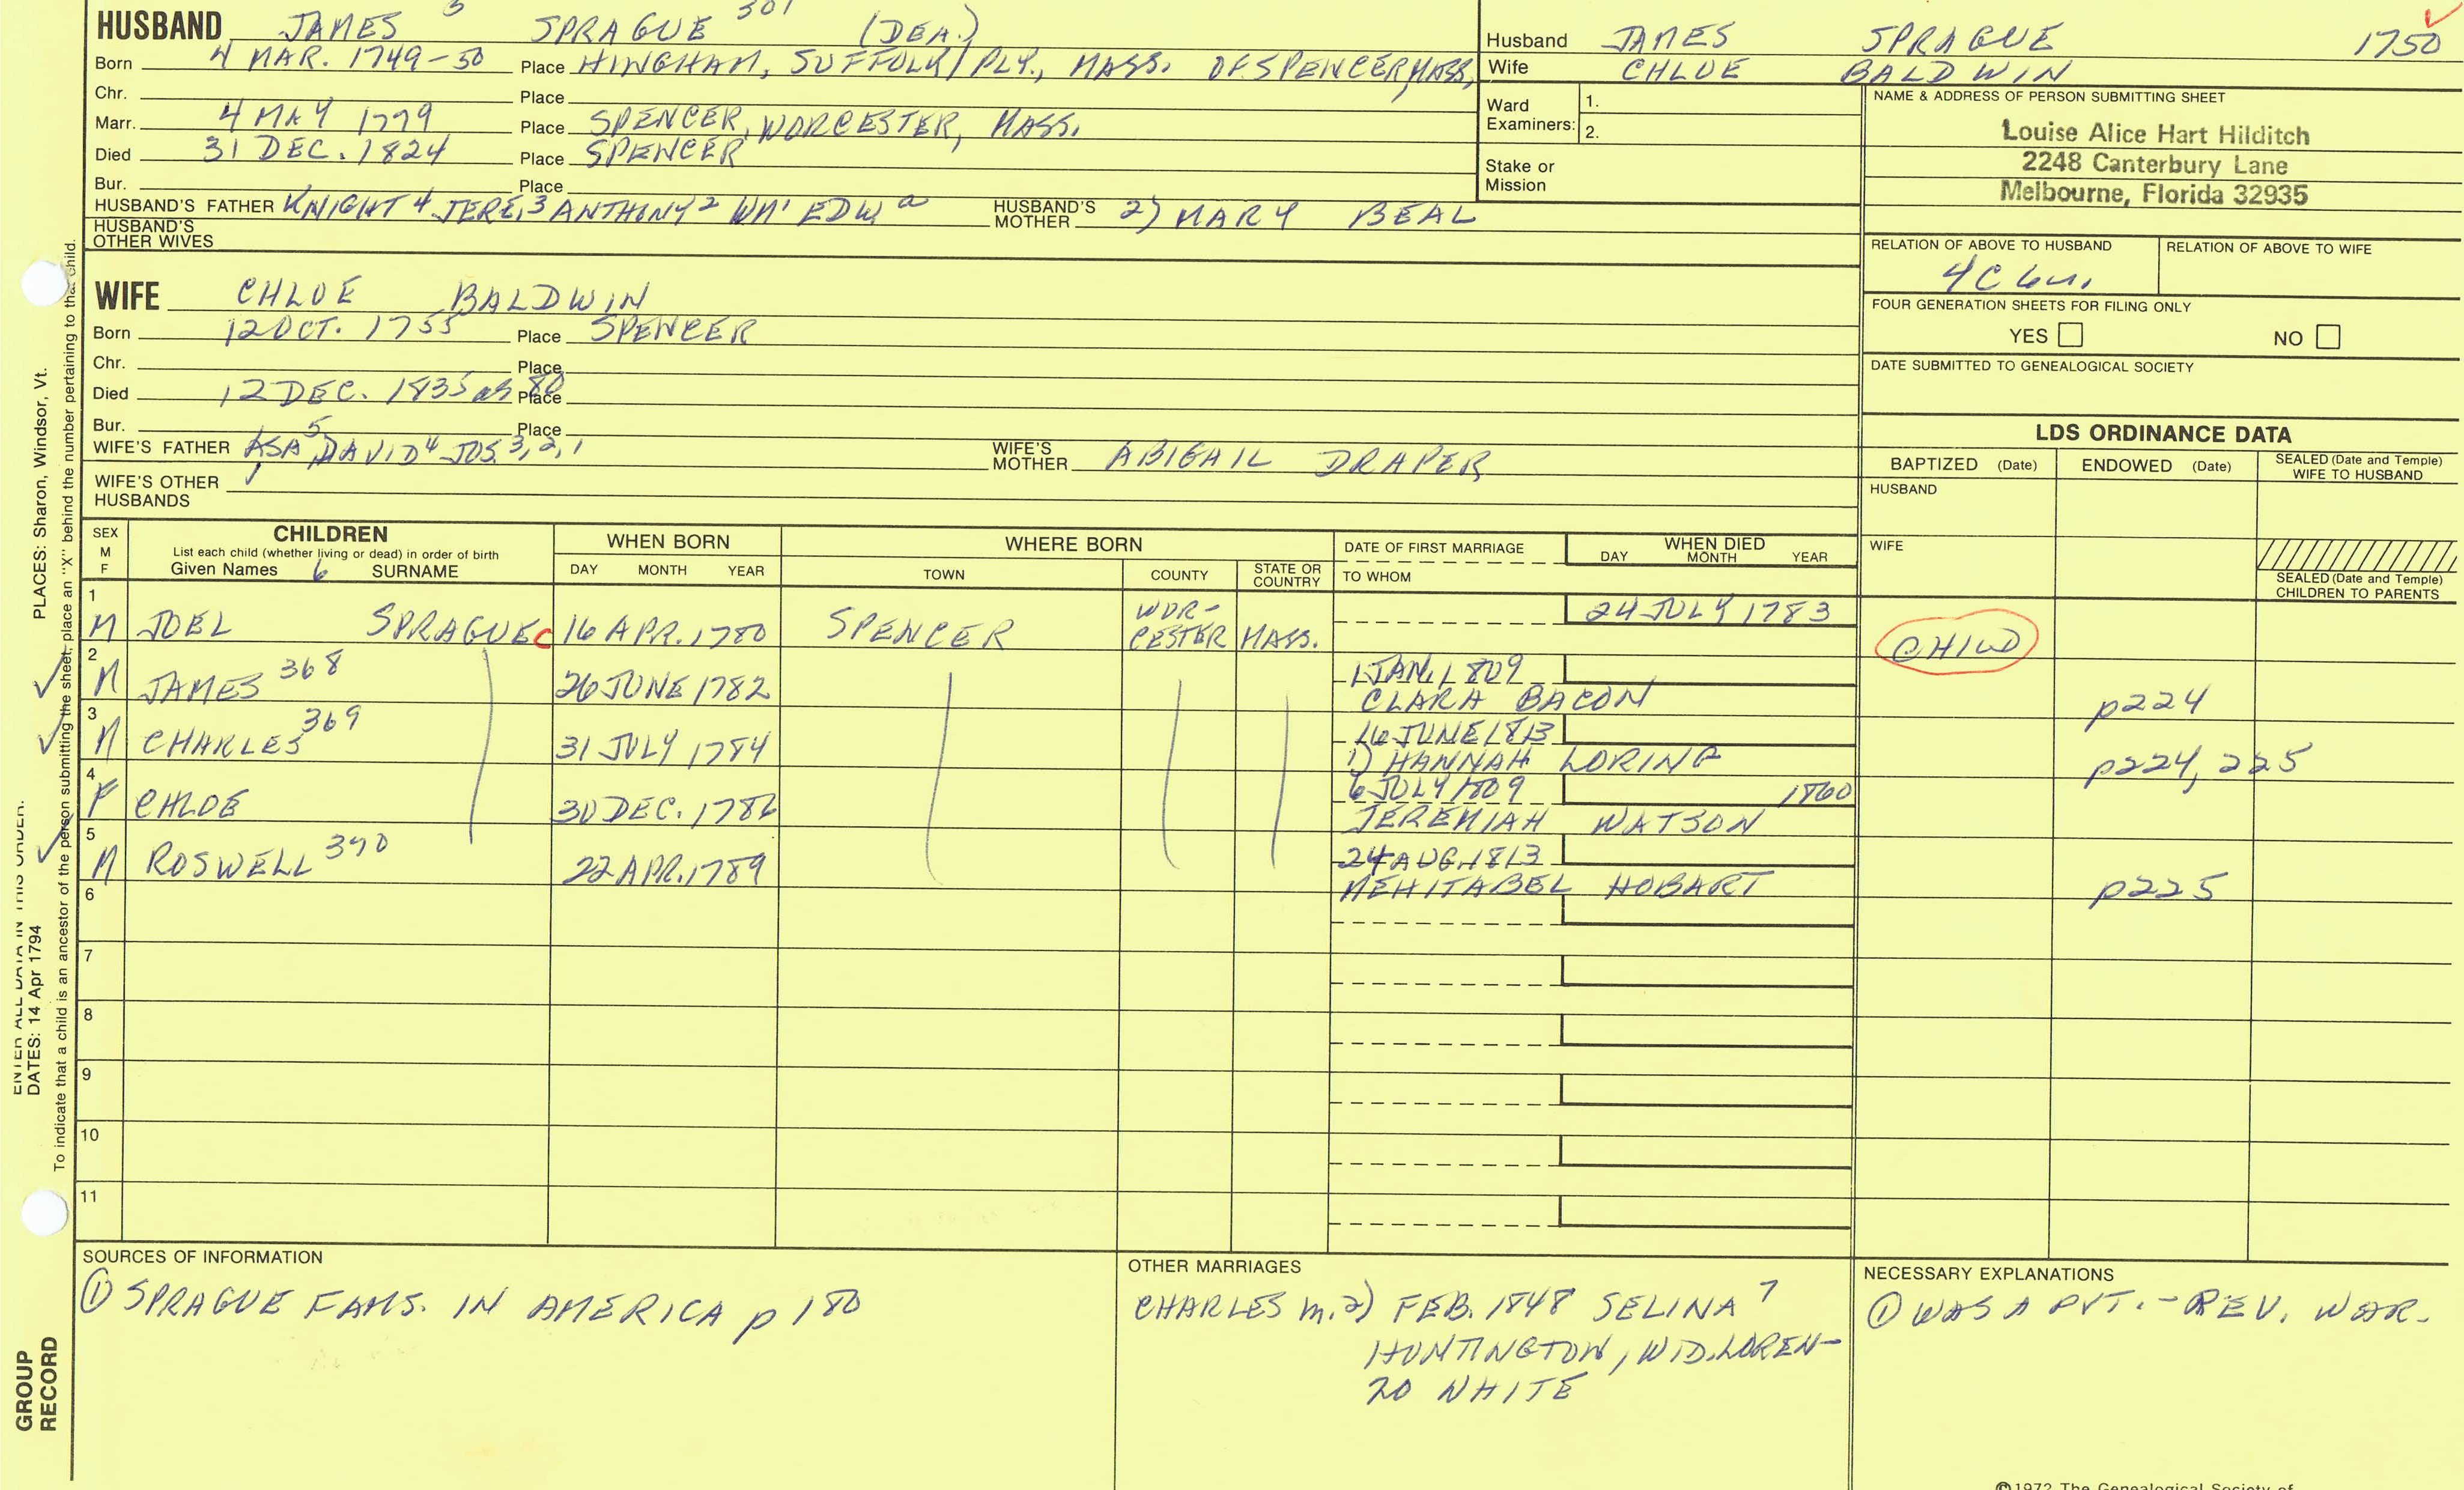 HUSBAND JAMES 5 SPRAGUE 301 (DEA.)
Born 4 MAR. 1749-50 Place HINGHAM, SUFFOLK/PLY., MASS. OF SPENCER, MASS.
Chr. Place
Marr. 4 MAY 1779 Place SPENCER, WORCESTER, MASS.
Died 31 DEC. 1824 Place SPENCER
Bur. Place
HUSBAND'S FATHER KNIGHT 4 JERE, 3 ANTHONY 2 WM 1 EDW a HUSBAND'S MOTHER 2) MARY BEAL
HUSBAND'S OTHER WIVES
Husband JAMES SPRAGUE 1750
Wife CHLOE BALDWIN
Ward Examiners: 1.
2.
Stake or Mission
NAME & ADDRESS OF PERSON SUBMITTING SHEET
Louise Alice Hart Hilditch
2248 Canterbury Lane
Melbourne, Florida 32935
RELATION OF ABOVE TO HUSBAND RELATION OF ABOVE TO WIFE
4C
FOUR GENERATION SHEETS FOR FILING ONLY
YES NO
DATE SUBMITTED TO GENEALOGICAL SOCIETY
WIFE CHLOE BALDWIN
Born 12 OCT. 1755 Place SPENCER
Chr. Place
Died 12 DEC. 1835 80 Place
Bur. Place
WIFE'S FATHER ASA 5 DAVID 4 JOS. 3, 2, 1 WIFE'S MOTHER ABIGAIL DRAPER
WIFE'S OTHER HUSBANDS
LDS ORDINANCE DATA
BAPTIZED (Date) ENDOWED (Date) SEALED (Date and Temple) WIFE TO HUSBAND
HUSBAND
WIFE
SEALED (Date and Temple) CHILDREN TO PARENTS
SEX M F
CHILDREN
List each child (whether living or dead) in order of birth
Given Names 6 SURNAME
WHEN BORN
DAY MONTH YEAR
WHERE BORN
TOWN COUNTY STATE OR COUNTRY
DATE OF FIRST MARRIAGE
TO WHOM
WHEN DIED
DAY MONTH YEAR
1 M JOEL SPRAGUE C 16 APR. 1780 SPENCER WOR-CESTER MASS. 24 JULY 1783 CHILD
2 M JAMES 368 26 JUNE 1782 1 JAN. 1809
CLARA BACON p224
3 M CHARLES 369 31 JULY 1784 16 JUNE 1813
1) HANNAH LORING p224, 225
4 F CHLOE 30 DEC. 1786 6 JULY 1809 1860
JEREMIAH WATSON
5 M ROSWELL 390 22 APR. 1789 24 AUG. 1813
MEHITABEL HOBART p225
6
7
8
9
10
11
SOURCES OF INFORMATION
① SPRAGUE FAMS. IN AMERICA p 180
OTHER MARRIAGES
CHARLES m. 2) FEB. 1848 SELINA 7
HUNTINGTON, WID. LOREN-
ZO WHITE
NECESSARY EXPLANATIONS
① WAS A PVT. - REV. WAR.
PLACES: Sharon, Windsor, Vt.
ENTER ALL DATA IN THIS ORDER:
DATES: 14 Apr 1794
To indicate that a child is an ancestor of the person submitting the sheet, place an "X" behind the number pertaining to that child.
GROUP
RECORD
©1972 The Genealogical Society of